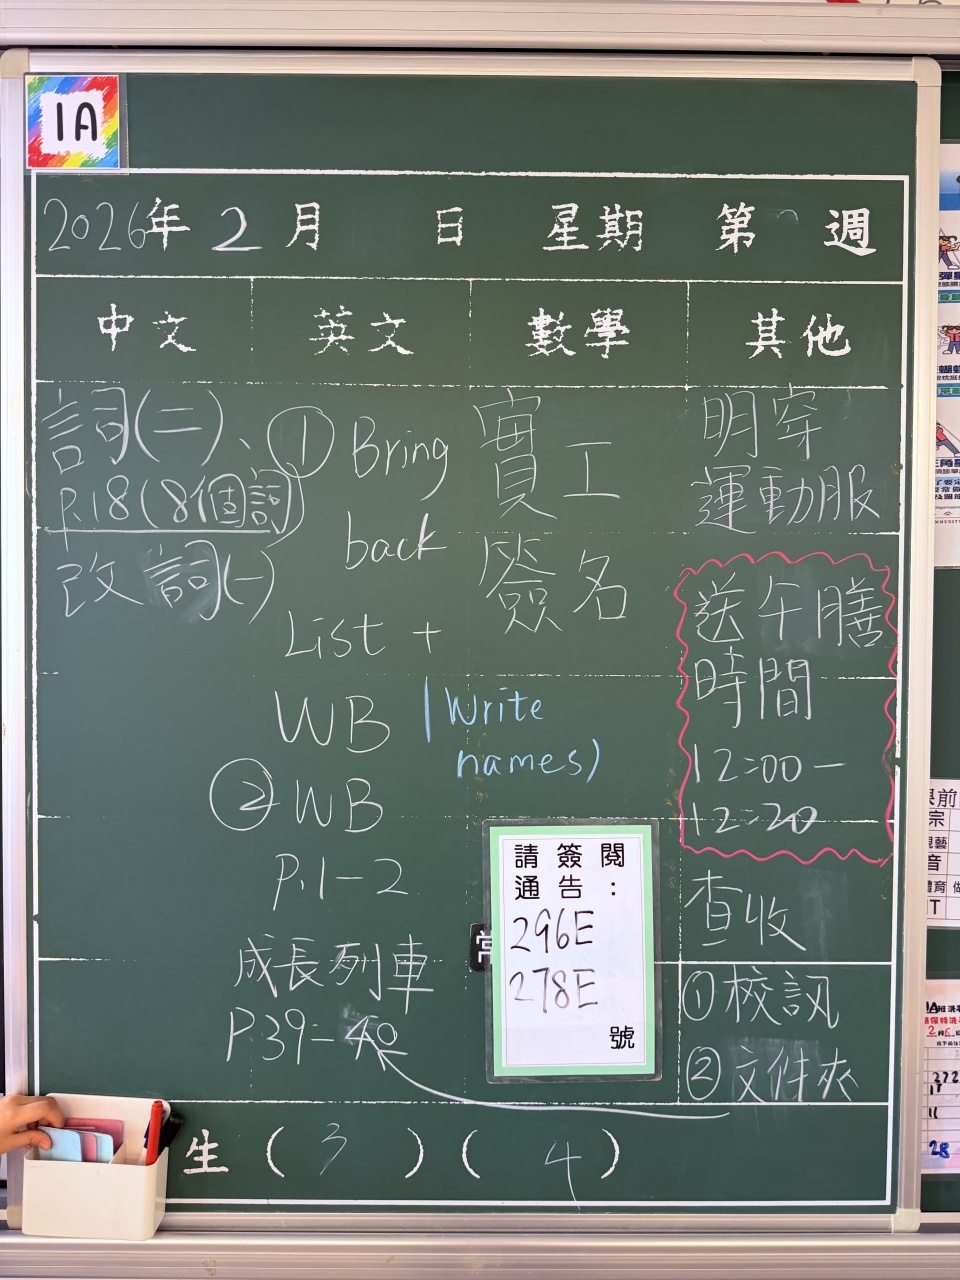 1A
2026年 2月 日 星期 第 週
中文 英文 數學 其他
詞(二)、
P.18(8個詞)
改 詞(一)
① Bring
back
List +
WB (Write
names)
② WB
P.1-2
成長列車
P.39-40
實工
簽名
明穿
運動服
送午膳
時間
12:00-
12:20
查收
①校訊
②文件夾
請簽閱
通告:
296E
278E
號
生(3)(4)